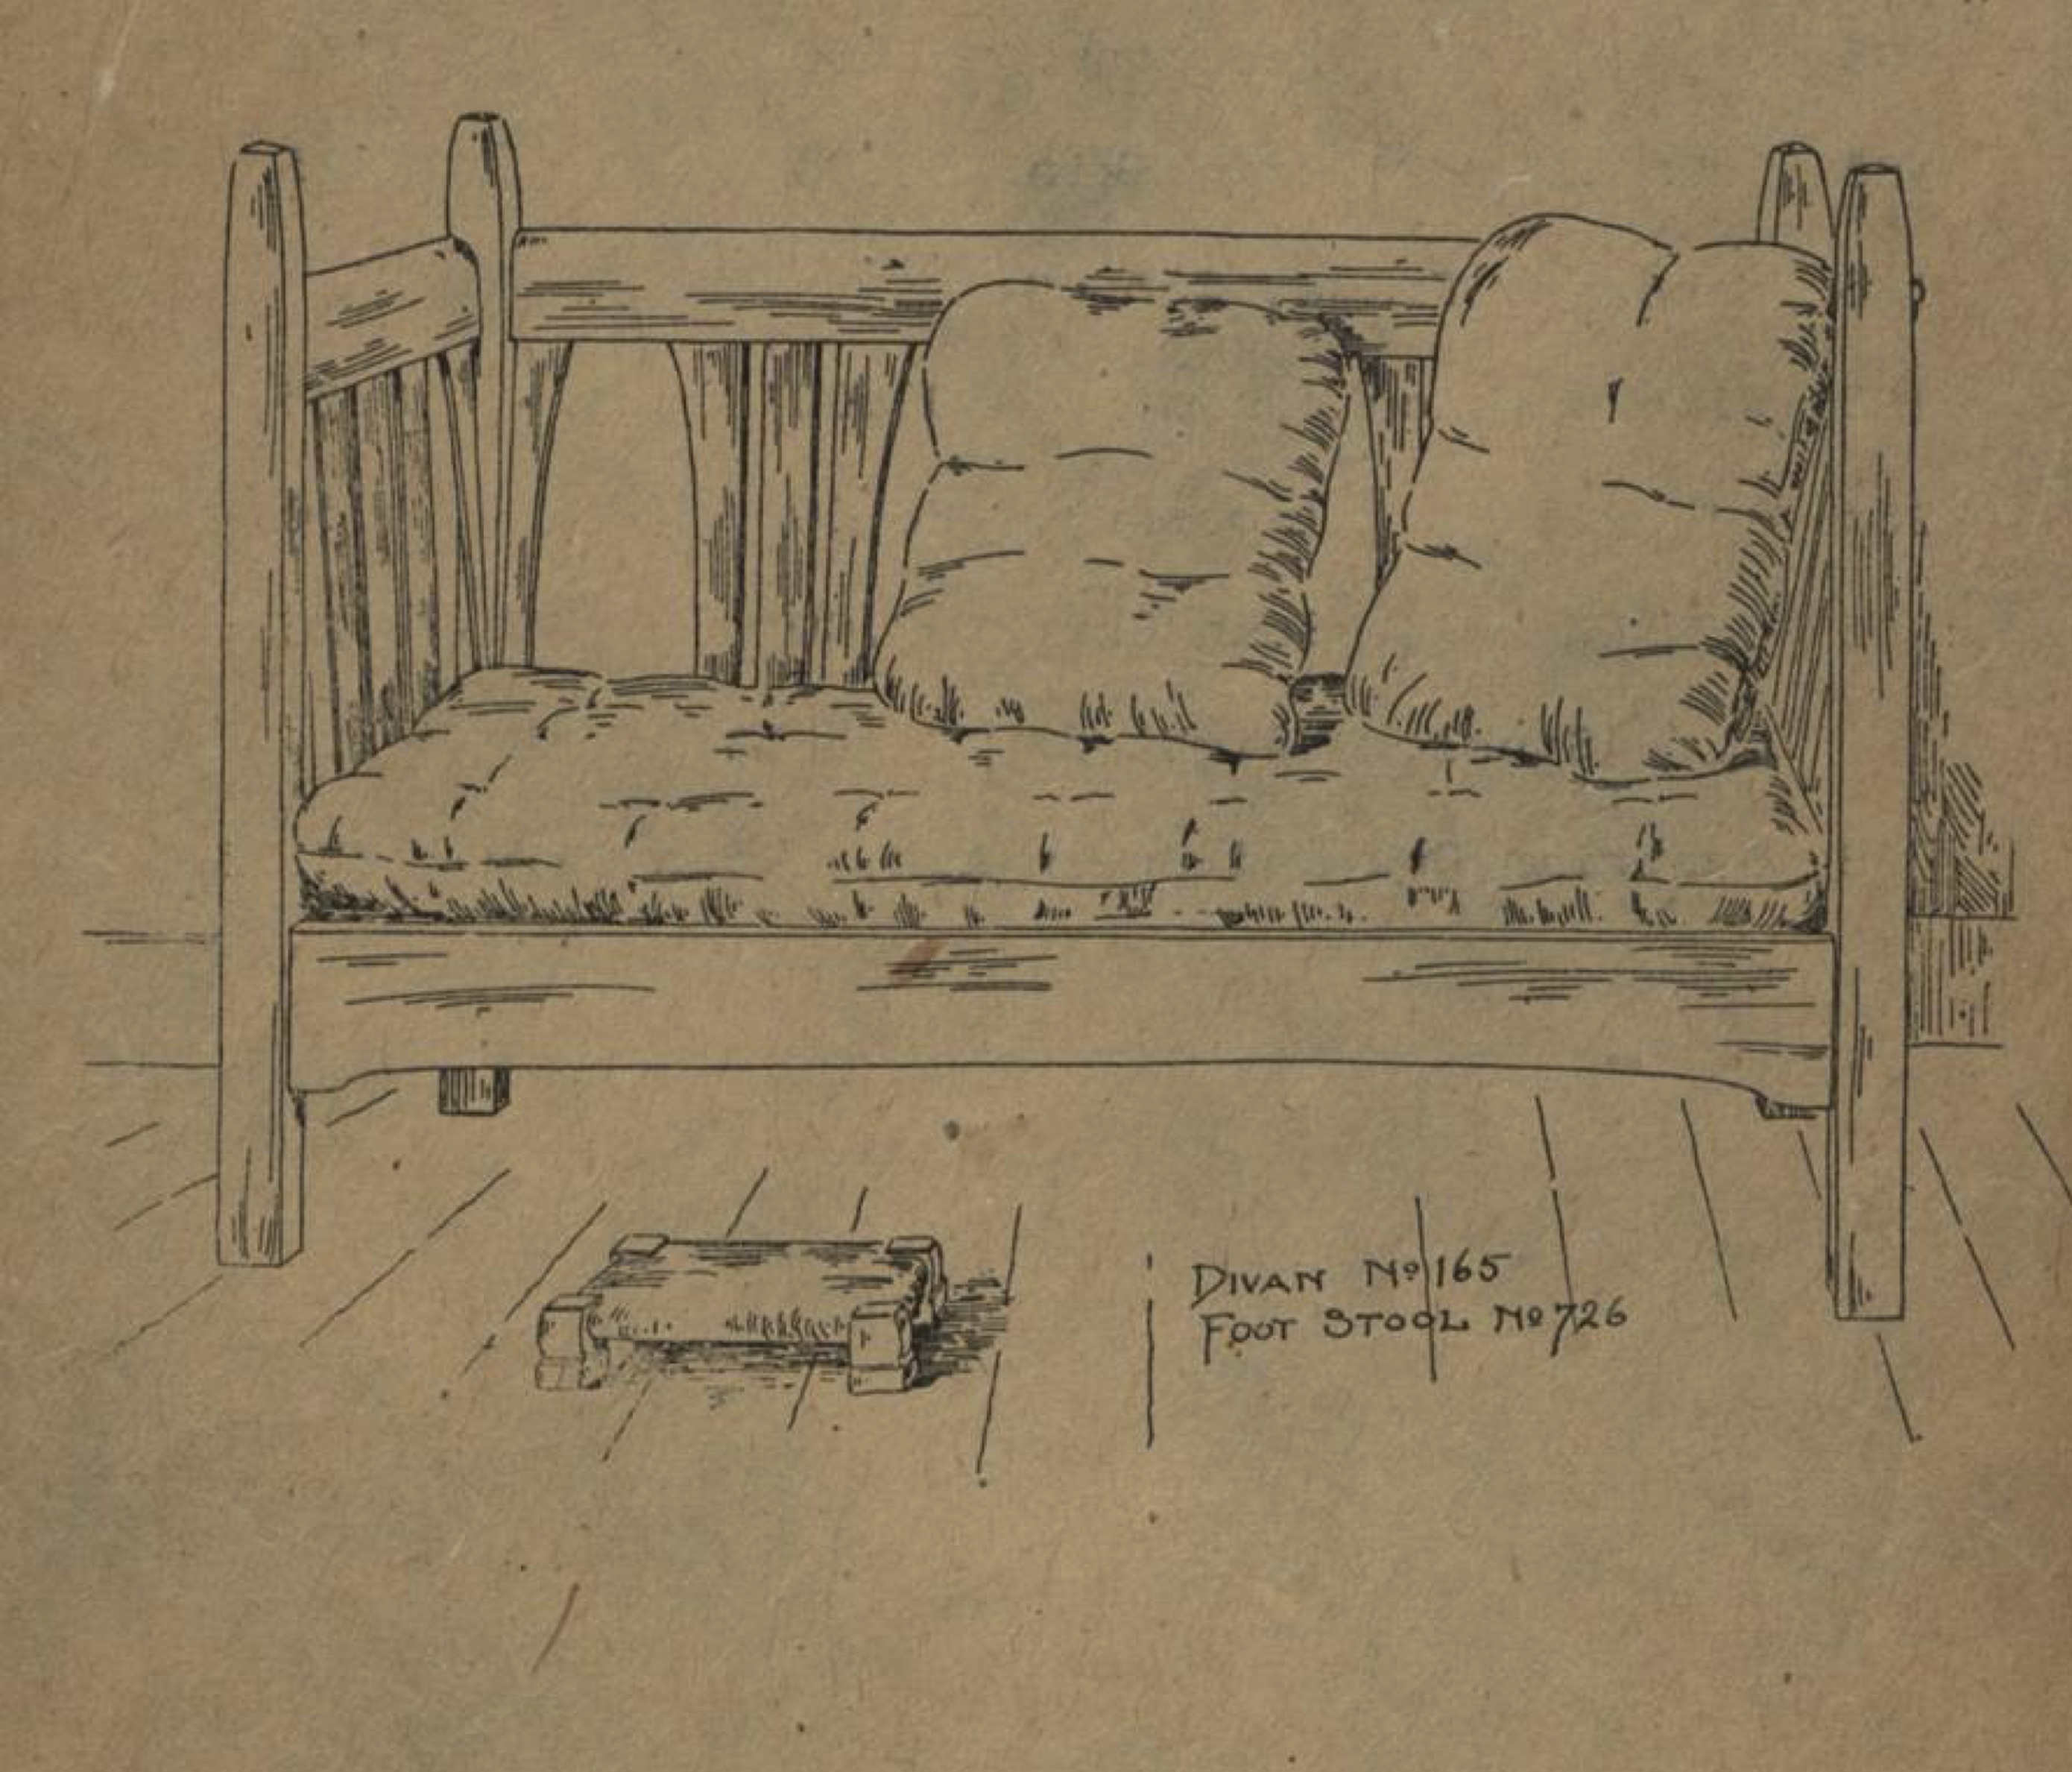 DIVAN No 165
FOOT STOOL No 726